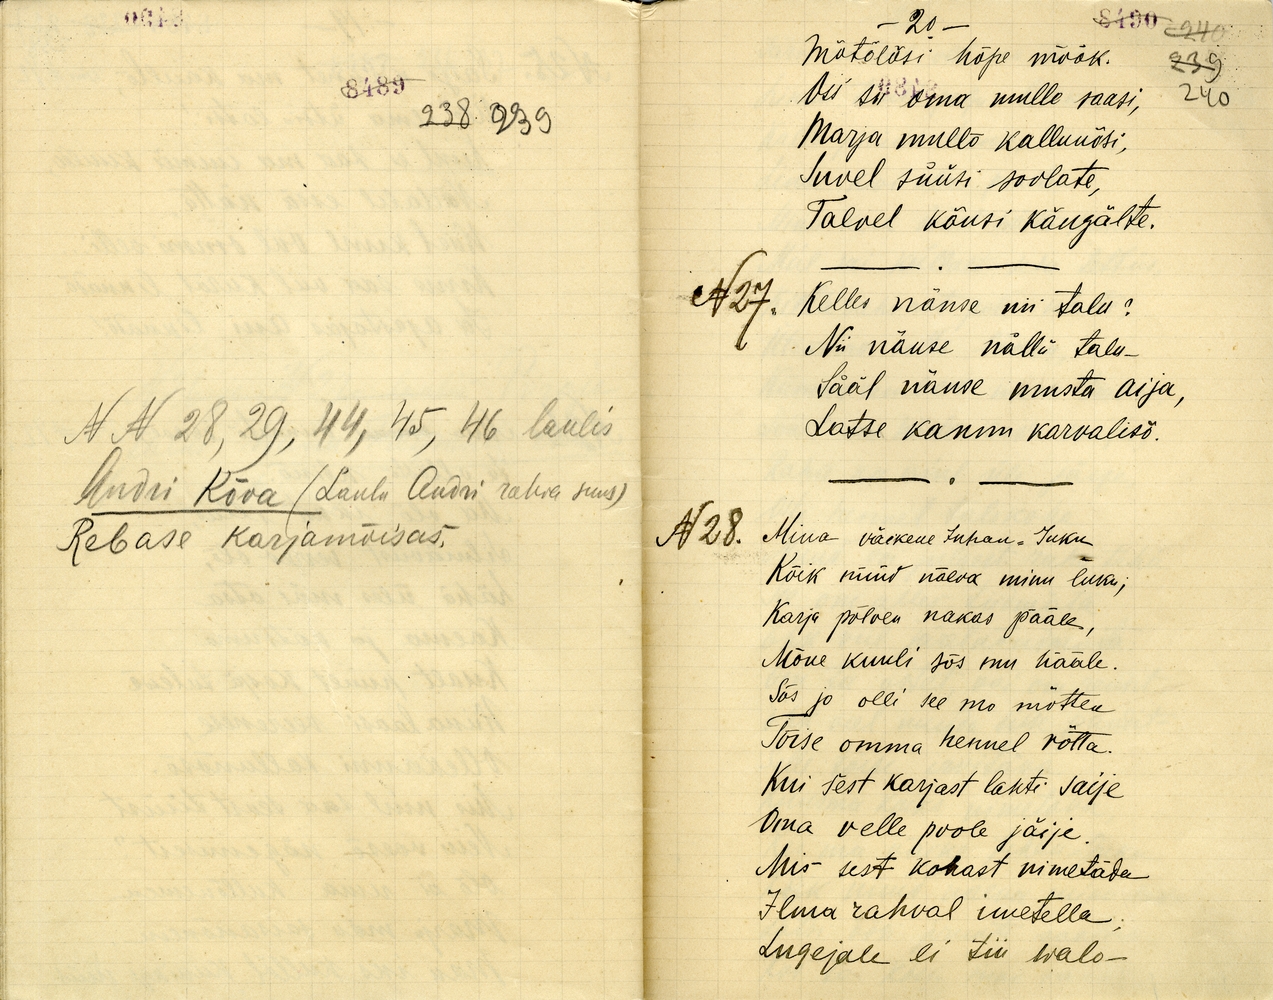 8489
238 239
N N 28, 29, 44, 45, 46 laulis
Andri Kõva (Laulu Andri rahva suus)
Rebase karjamõisas.
- 20 -
8490 240
239
240
Mõtõlõsi hõpe mõõk.
Oii sii oma mulle saasi,
Marja mullõ kallunõsi,
Suvel süüsi soolate,
Talvel kõnsi kängälte.
N 27. Kelles nänse nii talu?
Nii nänse nällü talu-
Sääl nänse musta aija,
Latse kannu karvalisõ.
N 28. Mina väekene Juhan-Juku
Kõik nüüd näeva minu luku;
Karja põlven nakas pääle,
Mõne kuuli sõs mu hääle.
Sõs jo olli see mo mõtten
Tõise omma hennel võtta.
Kui sest karjast lahti saije
Oma velle poole jäije.
Mis sest kohast nimetäda
Ilma rahval imetella,
Lugejale ei tii walo-